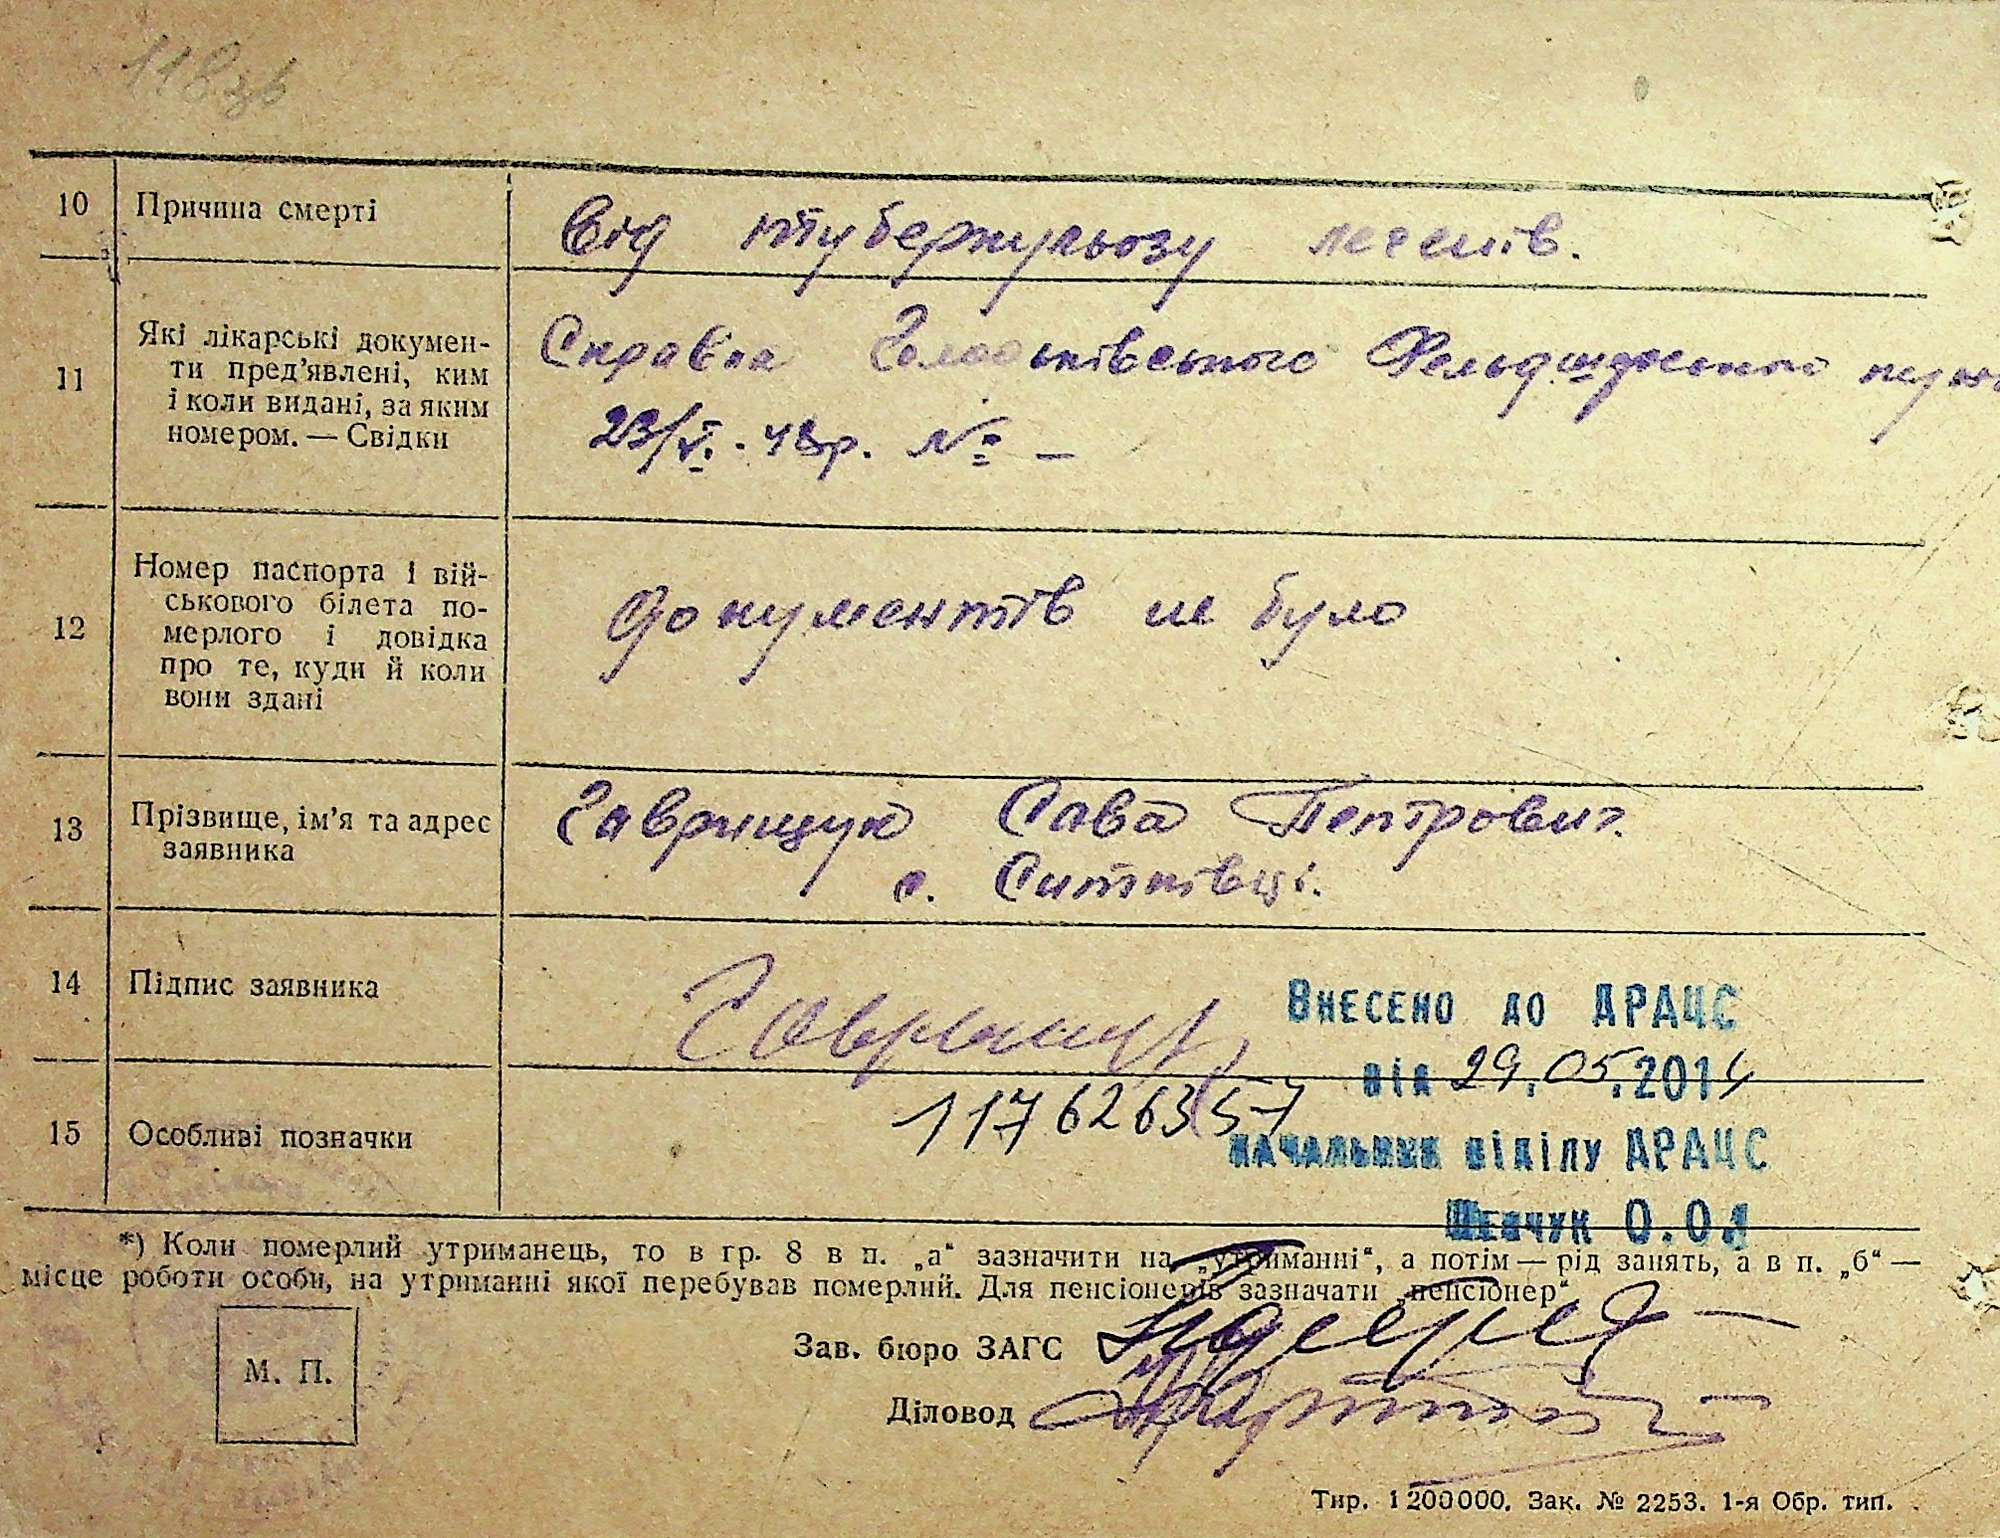 118зв
10 Причина смерті Від туберкульозу легенів.
11 Які лікарські докумен-
ти пред’явлені, ким
і коли видані, за яким
номером. — Свідки
Справка Фельдшерського
23/VI. 48р. № –
12 Номер паспорта і вій-
ськового білета по-
мерлого і довідка
про те, куди й коли
вони здані
Документів не було
13 Прізвище, ім’я та адрес
заявника
Гаврищук Сава Петрович.
с. Ситківці.
14 Підпис заявника Гаврищук
Внесено до ДРАЦС
від 29.05.2014
15 Особливі позначки 117626357
начальник відділу ДРАЦС
Шевчук О.О.
*) Коли померлий утриманець, то в гр. 8 в п. „а“ зазначити на „утриманні“, а потім — рід занять, а в п. „б“ —
місце роботи особи, на утриманні якої перебував померлий. Для пенсіонерів зазначати „пенсіонер“.
М. П.
Зав. бюро ЗАГС
Діловод
Тир. 1200000. Зак. № 2253. 1-я Обр. тип.